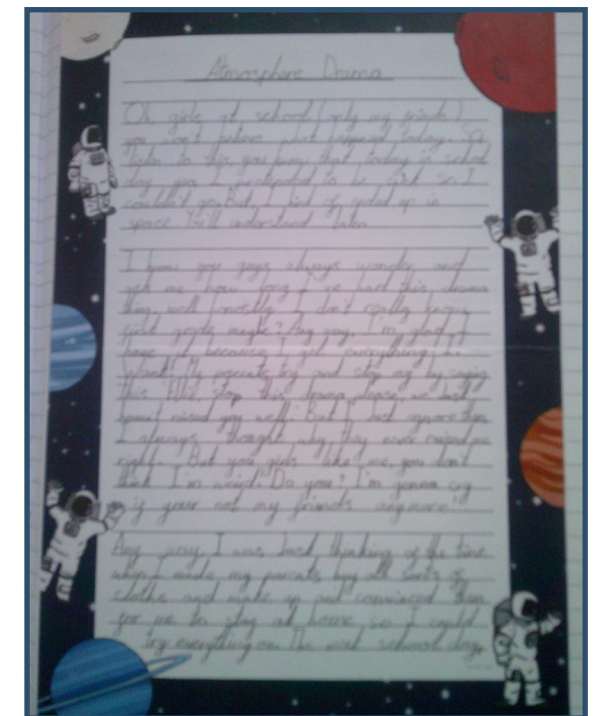 Atmosphere Drama
Oh, girls at school (only my friends)
you won't believe what happend today. So,
listen to this you know that today is school
day, yea I pretended to be sick so I
couldn't go. But, I kind of ended up in
space. You'll understand later.
I know you guys always wonder and
ask me how long I've had this drama
thing, well honestly I don't really know
first grade maybe? Any way, I'm glad I
have it because I get everything I
want! My parents try and stop me by saying
this "Ellie, stop this drama please, we just
haven't raised you well." But I just ignore them
I always thought why they never raised me
right. But you girls like me, you don't
think I'm weird. Do you? I'm gonna cry
if your not my friends anymore!
Any way, I was just thinking of the time
when I made my parents buy all sorts of
cloths and make up and convinced them
for me to stay at home so I could
try everything on. The next school day,